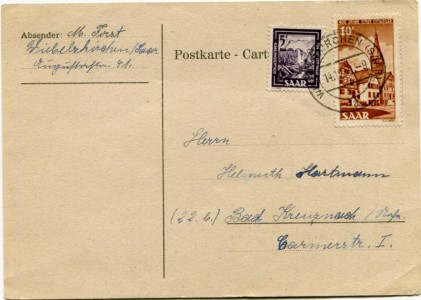 Absender: M. Forst
Wiebelskirchen/Saar
Auguststr. 41.
Postkarte - Cart
5F
SAAR
SAAR
Herrn
Helmuth Hartmann
(22 b.) Bad Kreuznach/
Carmerstr. 1.